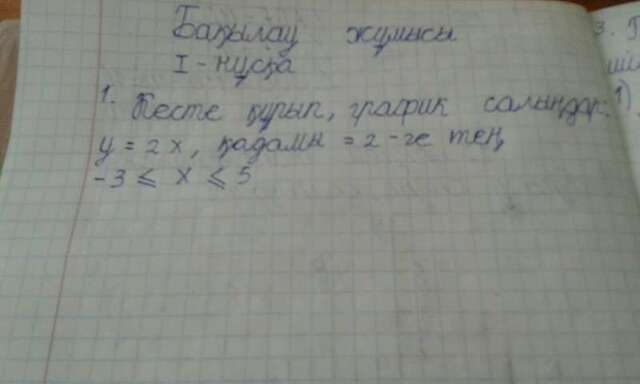 Бақылау жұмысы
I - нұсқа
1. Кесте құрып, график салыңдар.
y = 2x, қадамы = 2-ге тең
-3 ≤ x ≤ 5
3.
1)